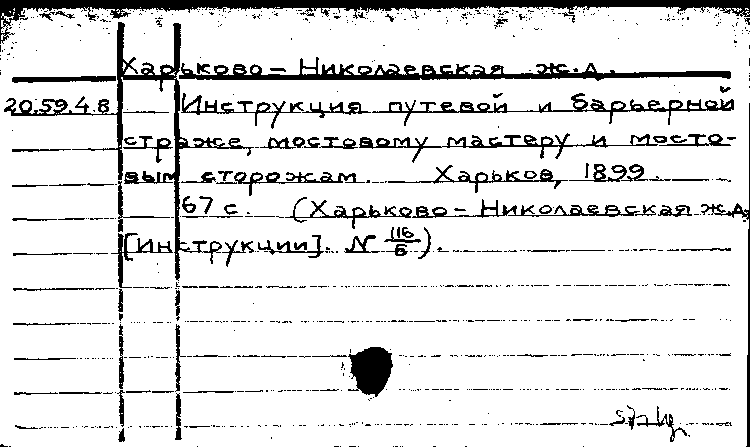 Харьково-Николаевская ж.д.
20.59.4.8 Инструкция путевой и барьерной
страже, мостовому мастеру и мосто-
вым сторожам. Харьков, 1899.
67 с. (Харьково-Николаевская ж.д.
[Инструкции]. N 116/Б).